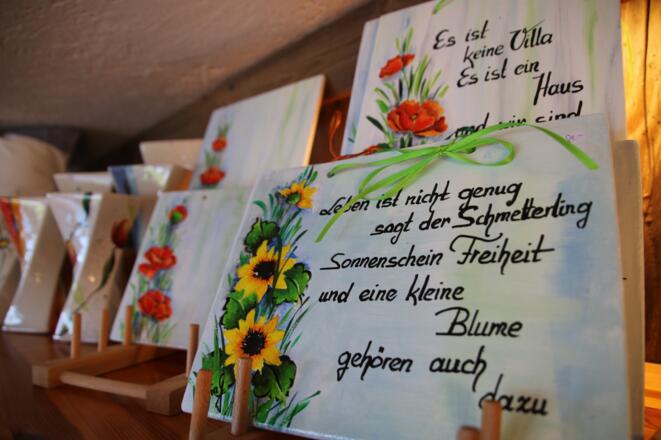 Es ist
keine Villa
Es ist ein
Haus
und wir sind
Leben ist nicht genug
sagt der Schmetterling
Sonnenschein Freiheit
und eine kleine
Blume
gehören auch
dazu